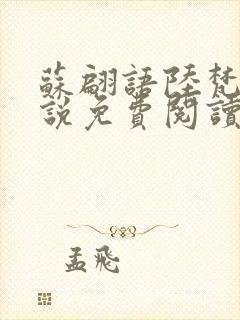 蘇翩語陸梵
說免費閱讀
孟飛